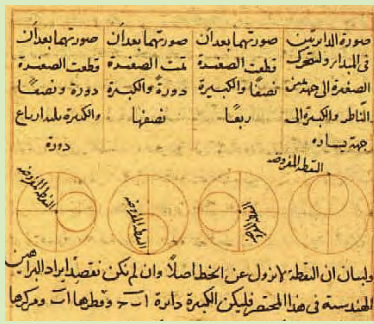 صورة الدايرتين
فى المبدا ولتتحرك
الصغيرة الى جهة يمين
الناظر والكبيرة الى
جهة يساره
صورتهما بعد أن
قطعت الصغيرة
نصفا والكبيرة
ربعًا
صورتهما بعد أن
تمت الصغيرة
دورة والكبيرة
نصفها
صورتهما بعد أن
قطعت الصغيرة
دورة ونصفًا
والكبيرة ثلثة ارباع
دورة
النقطة المفروضة
النقطة المفروضة
النقطة المفروضة
النقطة المفروضة
ولبيان ان النقطة لا تزول عن الخط اصلًا وان لم نكن نقصد ايراد البراهين
الهندسية فى هذا المختصر فليكن الكبيرة دائرة اب وقطرها اب ومركزها